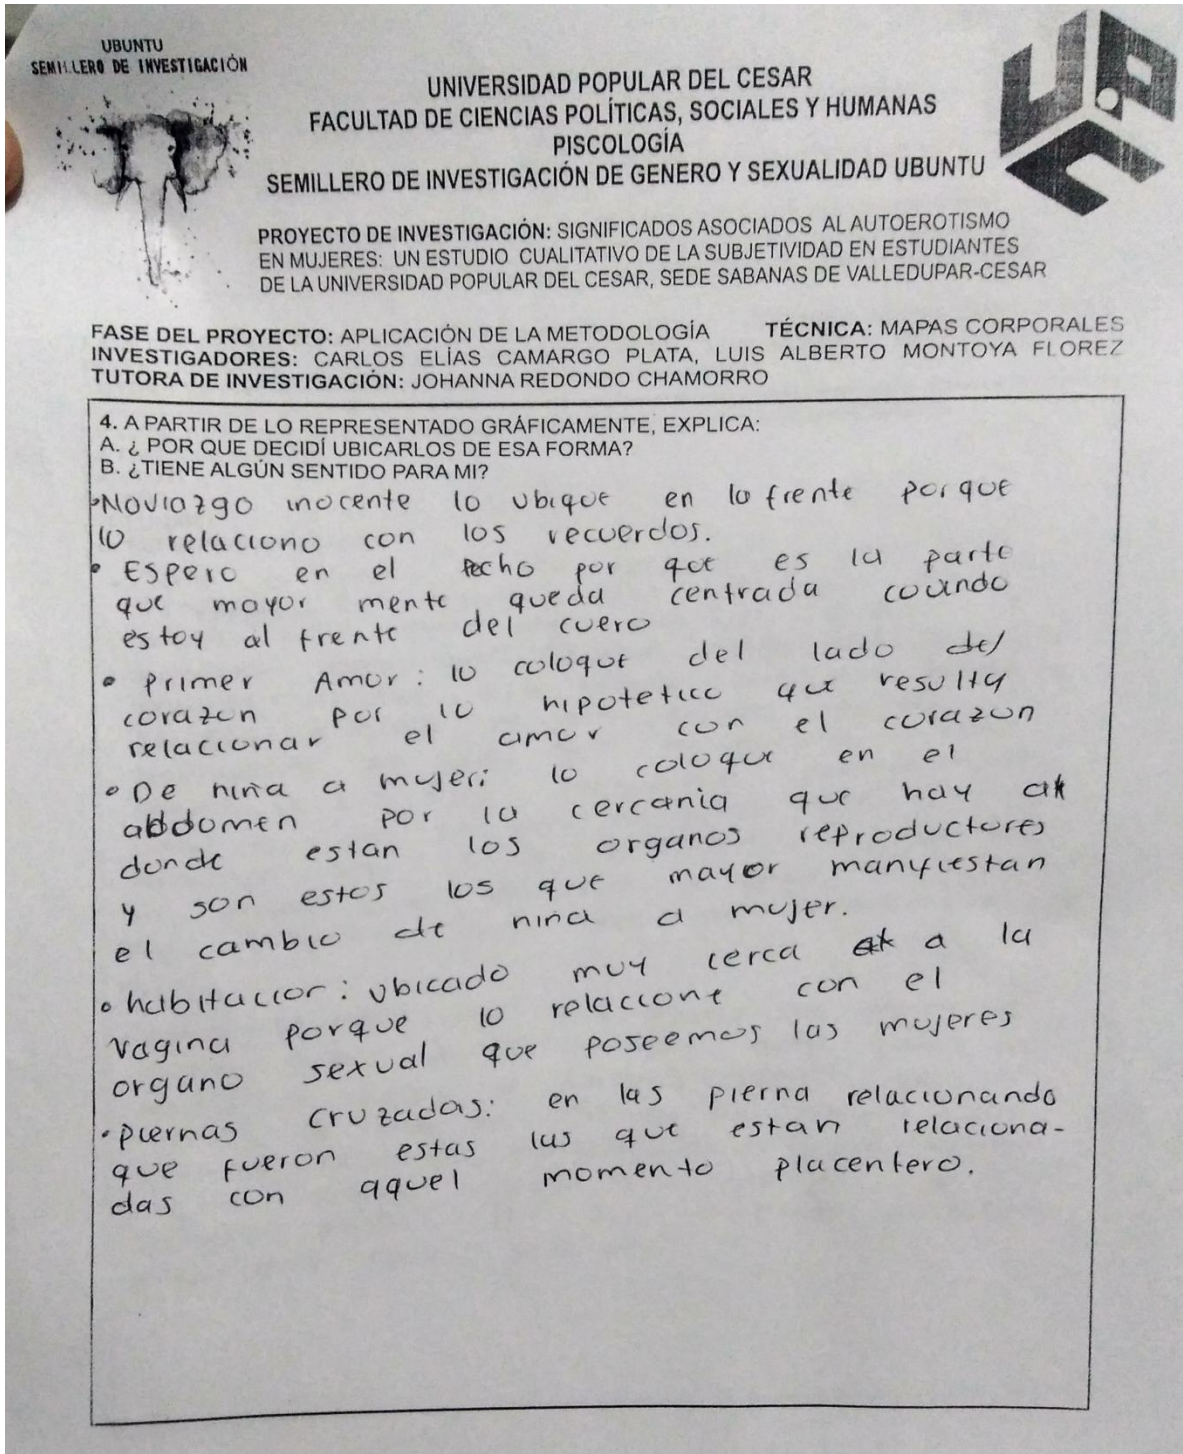 UBUNTU
SEMILLERO DE INVESTIGACIÓN
UNIVERSIDAD POPULAR DEL CESAR
FACULTAD DE CIENCIAS POLÍTICAS, SOCIALES Y HUMANAS
PISCOLOGÍA
SEMILLERO DE INVESTIGACIÓN DE GENERO Y SEXUALIDAD UBUNTU
UPC
PROYECTO DE INVESTIGACIÓN: SIGNIFICADOS ASOCIADOS AL AUTOEROTISMO
EN MUJERES: UN ESTUDIO CUALITATIVO DE LA SUBJETIVIDAD EN ESTUDIANTES
DE LA UNIVERSIDAD POPULAR DEL CESAR, SEDE SABANAS DE VALLEDUPAR-CESAR
FASE DEL PROYECTO: APLICACIÓN DE LA METODOLOGÍA TÉCNICA: MAPAS CORPORALES
INVESTIGADORES: CARLOS ELÍAS CAMARGO PLATA, LUIS ALBERTO MONTOYA FLOREZ
TUTORA DE INVESTIGACIÓN: JOHANNA REDONDO CHAMORRO
4. A PARTIR DE LO REPRESENTADO GRÁFICAMENTE, EXPLICA:
A. ¿ POR QUE DECIDÍ UBICARLOS DE ESA FORMA?
B. ¿TIENE ALGÚN SENTIDO PARA MI?
•Noviazgo inocente lo ubique en la frente porque
lo relaciono con los recuerdos.
• Espero en el pecho por que es la parte
que mayor mente queda centrada cuando
estoy al frente del cuero
• Primer Amor: lo coloque del lado del
corazon por lo hipotetico que resulta
relacionar el amor con el corazon
• De niña a mujer: lo coloque en el
abdomen por la cercania que hay
donde estan los organos reproductores
y son estos los que mayor manifiestan
el cambio de niña a mujer.
• habitacion: ubicado muy cerca a la
vagina porque lo relacione con el
organo sexual que poseemos las mujeres
• piernas cruzadas: en las pierna relacionando
que fueron estas las que estan relaciona-
das con aquel momento placentero.